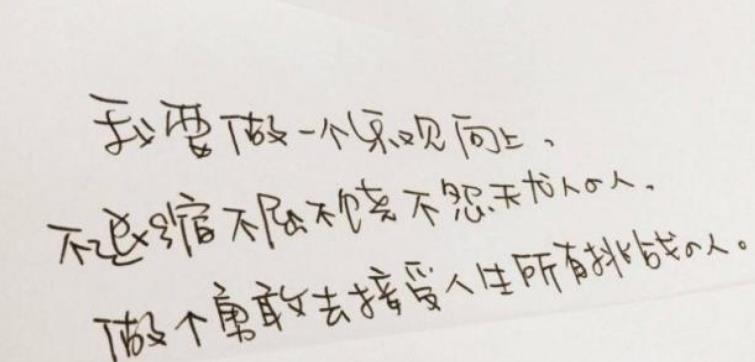 我要做一个乐观向上、
不退缩不屈不饶不怨天尤人の人、
做个勇敢去接受人生所有挑战の人。